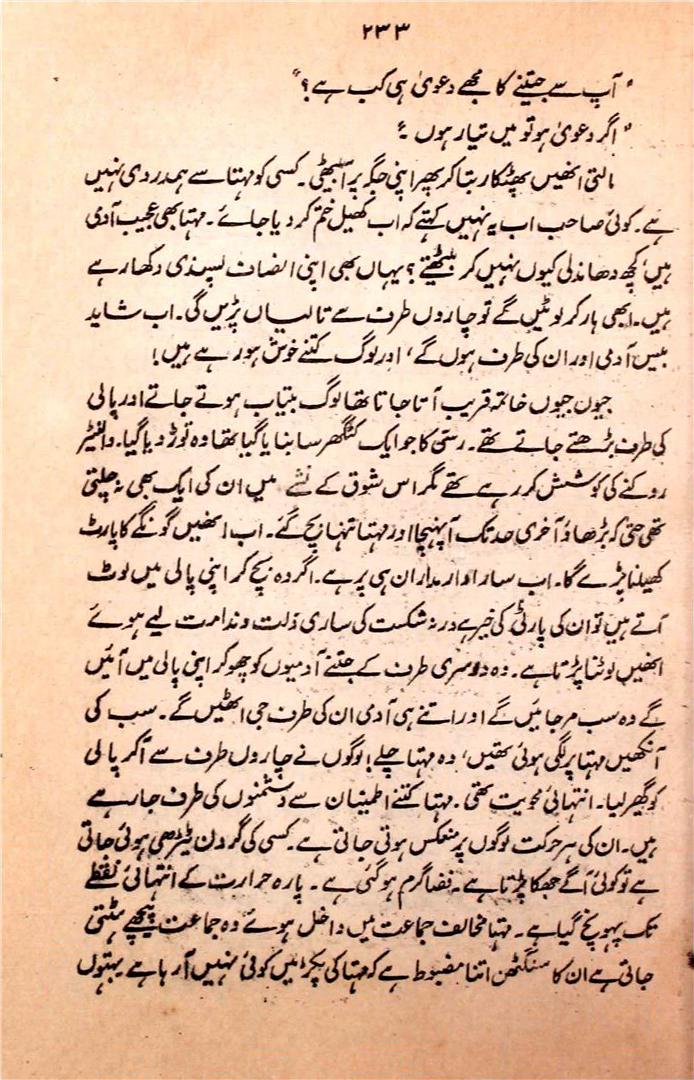 ۲۳۳
" آپ سے جیتنے کا مجھے دعویٰ ہی کب ہے؟"
" اگر دعویٰ ہو تو میں تیار ہوں ۔"
مالتی انھیں پھٹکار بتا کر پھر اپنی جگہ پر آ بیٹھی۔ کسی کو مہتا سے ہمدردی نہیں
ہے۔ کوئی صاحب اب یہ نہیں کہتے کہ اب کھیل ختم کر دیا جائے۔ مہتا بھی عجیب آدمی
ہیں، کچھ دھاندلی کیوں نہیں کر بیٹھتے؟ یہاں بھی اپنی انصاف پسندی دکھا رہے
ہیں۔ ابھی ہار کر لوٹیں گے تو چاروں طرف سے تالیاں پڑیں گی۔ اب شاید
بیس آدمی اور ان کی طرف ہوں گے، اور لوگ کتنے خوش ہو رہے ہیں!
جیوں جیوں خاتمہ قریب آتا جاتا تھا لوگ بیتاب ہوتے جاتے اور پالی
کی طرف بڑھتے جاتے تھے۔ رسی کا جو ایک کٹگھر سا بنایا گیا تھا وہ توڑ دیا گیا۔ والنٹیر
روکنے کی کوشش کر رہے تھے مگر اس شوق کے نشے میں ان کی ایک بھی نہ چلتی
تھی حتیٰ کہ بڑھاؤ آخری حد تک آ پہنچا اور مہتا تنہا بچ گئے۔ اب انھیں گونگے کا پارٹ
کھیلنا پڑے گا۔ اب سارا دارمدار ان ہی پر ہے۔ اگر وہ بچ کر اپنی پالی میں لوٹ
آتے ہیں تو ان کی پارٹی کی خیر ہے ورنہ شکست کی ساری ذلت و ندامت لیے ہوئے
انھیں لوٹنا پڑتا ہے۔ وہ دوسری طرف کے جتنے آدمیوں کو چھو کر اپنی پالی میں آئیں
گے وہ سب مر جائیں گے اور اتنے ہی آدمی ان کی طرف جی اٹھیں گے۔ سب کی
آنکھیں مہتا پر لگی ہوئی تھیں، وہ مہتا چلے! لوگوں نے چاروں طرف سے آ کر پالی
کو گھیر لیا۔ انتہائی محویت تھی۔ مہتا کتنے اطمینان سے دشمنوں کی طرف جا رہے
ہیں۔ ان کی ہر حرکت لوگوں پر منعکس ہوتی جاتی ہے۔ کسی کی گردن ٹیڑھی ہوئی جاتی
ہے تو کوئی آگے جھکا پڑتا ہے۔ فضا گرم ہو گئی ہے۔ پارہ حرارت کے انتہائی نقطے
تک پہونچ گیا ہے۔ مہتا مخالف جماعت میں داخل ہوئے وہ جماعت پیچھے ہٹتی
جاتی ہے ان کا سنگٹھن اتنا مضبوط ہے کہ مہتا کی پکڑ میں کوئی نہیں آ رہا ہے بہتوں